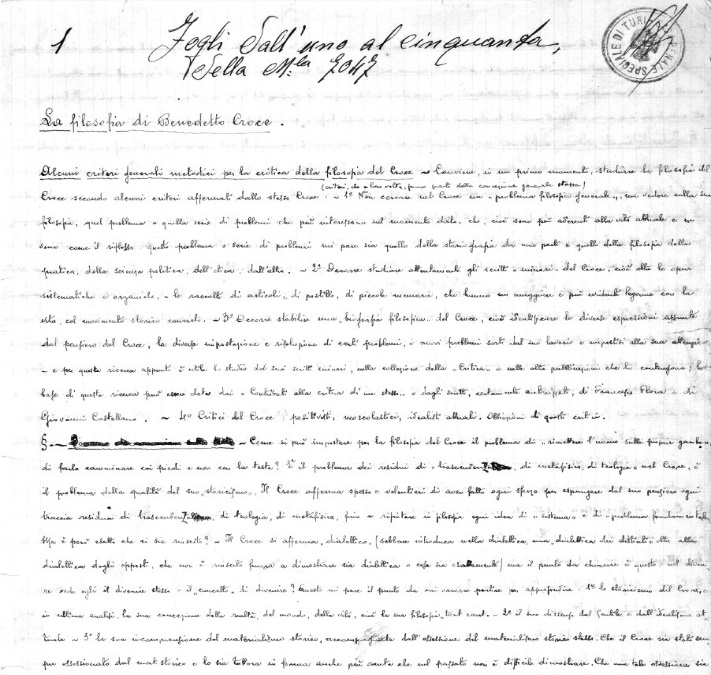 1
Fogli dall'uno al cinquanta,
della Mla 7047
CASA PENALE SPECIALE DI TURI
La filosofia di Benedetto Croce.
Alcuni criteri generali metodici per la critica della filosofia del Croce - Conviene, in un primo momento, studiare la filosofia del
Croce secondo alcuni criteri affermati dallo stesso Croce
(criteri, che a loro volta, fanno parte della concezione generale stessa)
- 1° Non cercare nel Croce un "problema filosofico generale", ma vedere nella sua
filosofia, quel problema o quella serie di problemi che più interessano nel momento dato, che, cioè sono più aderenti alla vita attuale e ne
sono come il riflesso: questo problema o serie di problemi mi pare sia quello della storiografia da una parte e quello della filosofia della
pratica, della scienza politica, dell'etica dall'altra. - 2° Occorre studiare attentamente gli scritti "minori" del Croce, cioè oltre le opere
sistematiche e organiche, le raccolte di articoli, di postille, di piccole memorie, che hanno un maggiore e più evidente legame con la
vita, col movimento storico concreto. - 3° Occorre stabilire una "biografia filosofica" del Croce, cioè identificare le diverse espressioni assunte
dal pensiero del Croce, la diversa impostazione e risoluzione di certi problemi, i nuovi problemi sorti dal suo lavorio e impostisi alla sua attenzione
- e per questa ricerca appunto è utile lo studio dei suoi scritti minori, nella collezione della "Critica" e nelle altre pubblicazioni che li contengono; la
base di questa ricerca può essere data dai "Contributi alla critica di me stesso" e dagli scritti, certamente autorizzati, di Francesco Flora e di
Giovanni Castellano. - 4° Critici del Croce: positivisti, neoscolastici, idealisti attuali. Obbiezioni di questi critici.
§.- - Come si può impostare per la filosofia del Croce il problema di "rimettere l'uomo sulle proprie gambe",
di farlo camminare coi piedi e non con la testa? È il problema dei residui di "trascendenza, di metafisica, di teologia" nel Croce, è
il problema della qualità del suo "storicismo". Il Croce afferma spesso e volentieri di aver fatto ogni sforzo per espungere dal suo pensiero ogni
traccia residua di trascendenza, di teologia, di metafisica, fino a rifiutare in filosofia ogni idea di "sistema" e di "problema fondamentale".
Ma è però esatto che ci sia riuscito? - Il Croce si afferma "dialettico", (sebbene introduca nella dialettica una "dialettica dei distinti" oltre alla
dialettica degli opposti, che non è riuscito finora a dimostrare sia dialettica o cosa sia esattamente) ma il punto da chiarire è questo: nel diveni-
re vede egli il divenire stesso o il "concetto" di divenire? Questo mi pare il punto da cui occorre partire per approfondire: 1° lo storicismo del Croce, e
in ultima analisi la sua concezione della realtà, del mondo, della vita, cioè la sua filosofia "tout court". - 2° il suo dissenso dal Gentile e dall'idealismo at-
tuale - 3° la sua incomprensione del materialismo storico, accompagnata dall'ossessione del materialismo storico stesso. Che il Croce sia stato sem-
pre ossessionato dal mat. storico e lo sia tuttora in forma anche più acuta che nel passato non è difficile dimostrare. Che una tale ossessione sia